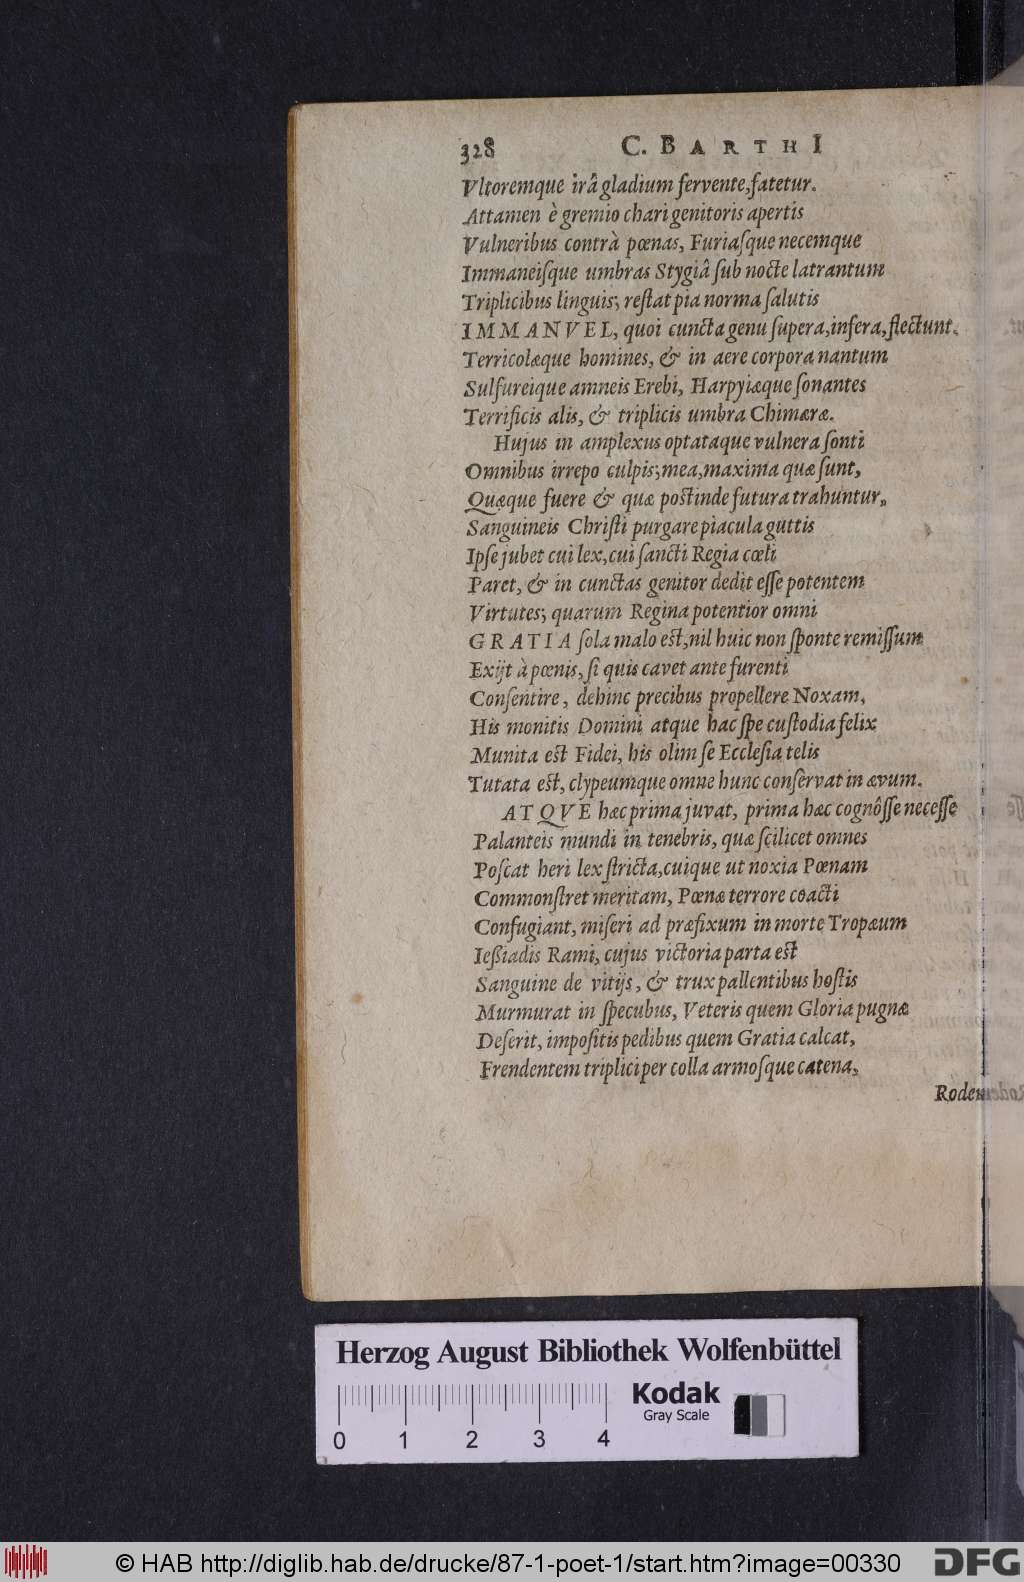 328 C. BARTHI
Vltoremque irâ gladium fervente, fatetur.
Attamen è gremio chari genitoris apertis
Vulneribus contrà pœnas, Furiaſque necemque
Immaneiſque umbras Stygiâ ſub nocte latrantum
Triplicibus linguis; reſtat pia norma ſalutis
IMMANVEL, quoi cuncta genu ſupera, infera, flectunt.
Terricolæque homines, & in aere corpora nantum
Sulfureique amneis Erebi, Harpyiæque ſonantes
Terrificis alis, & triplicis umbra Chimæræ.
Hujus in amplexus optataque vulnera ſonti
Omnibus irrepo culpis; mea, maxima quæ ſunt,
Quæque fuere & quæ poſtinde futura trahuntur,
Sanguineis Chriſti purgare piacula guttis
Ipſe jubet cui lex, cui ſancti Regia cœli
Paret, & in cunctas genitor dedit eſſe potentem
Virtutes; quarum Regina potentior omni
GRATIA ſola malo eſt, nil huic non ſponte remiſſum
Exijt à pœnis, ſi quis cavet ante furenti
Conſentire, dehinc precibus propellere Noxam,
His monitis Domini atque hac ſpe cuſtodia felix
Munita eſt Fidei, his olim ſe Eccleſia telis
Tutata eſt, clypeumque omne hunc conſervat in ævum.
ATQVE hæc prima juvat, prima hæc cognôſſe neceſſe
Palanteis mundi in tenebris, quæ ſcilicet omnes
Poſcat heri lex ſtricta, cuique ut noxia Pœnam
Commonſtret meritam, Pœnæ terrore coacti
Confugiant, miſeri ad præfixum in morte Tropæum
Ießiadis Rami, cujus victoria parta eſt
Sanguine de vitijs, & trux pallentibus hoſtis
Murmurat in ſpecubus, Veteris quem Gloria pugnæ
Deſerit, impoſitis pedibus quem Gratia calcat,
Frendentem triplici per colla armoſque catena,
Rodem
Herzog August Bibliothek Wolfenbüttel
Kodak
Gray Scale
0 1 2 3 4
© HAB http://diglib.hab.de/drucke/87-1-poet-1/start.htm?image=00330
DFG